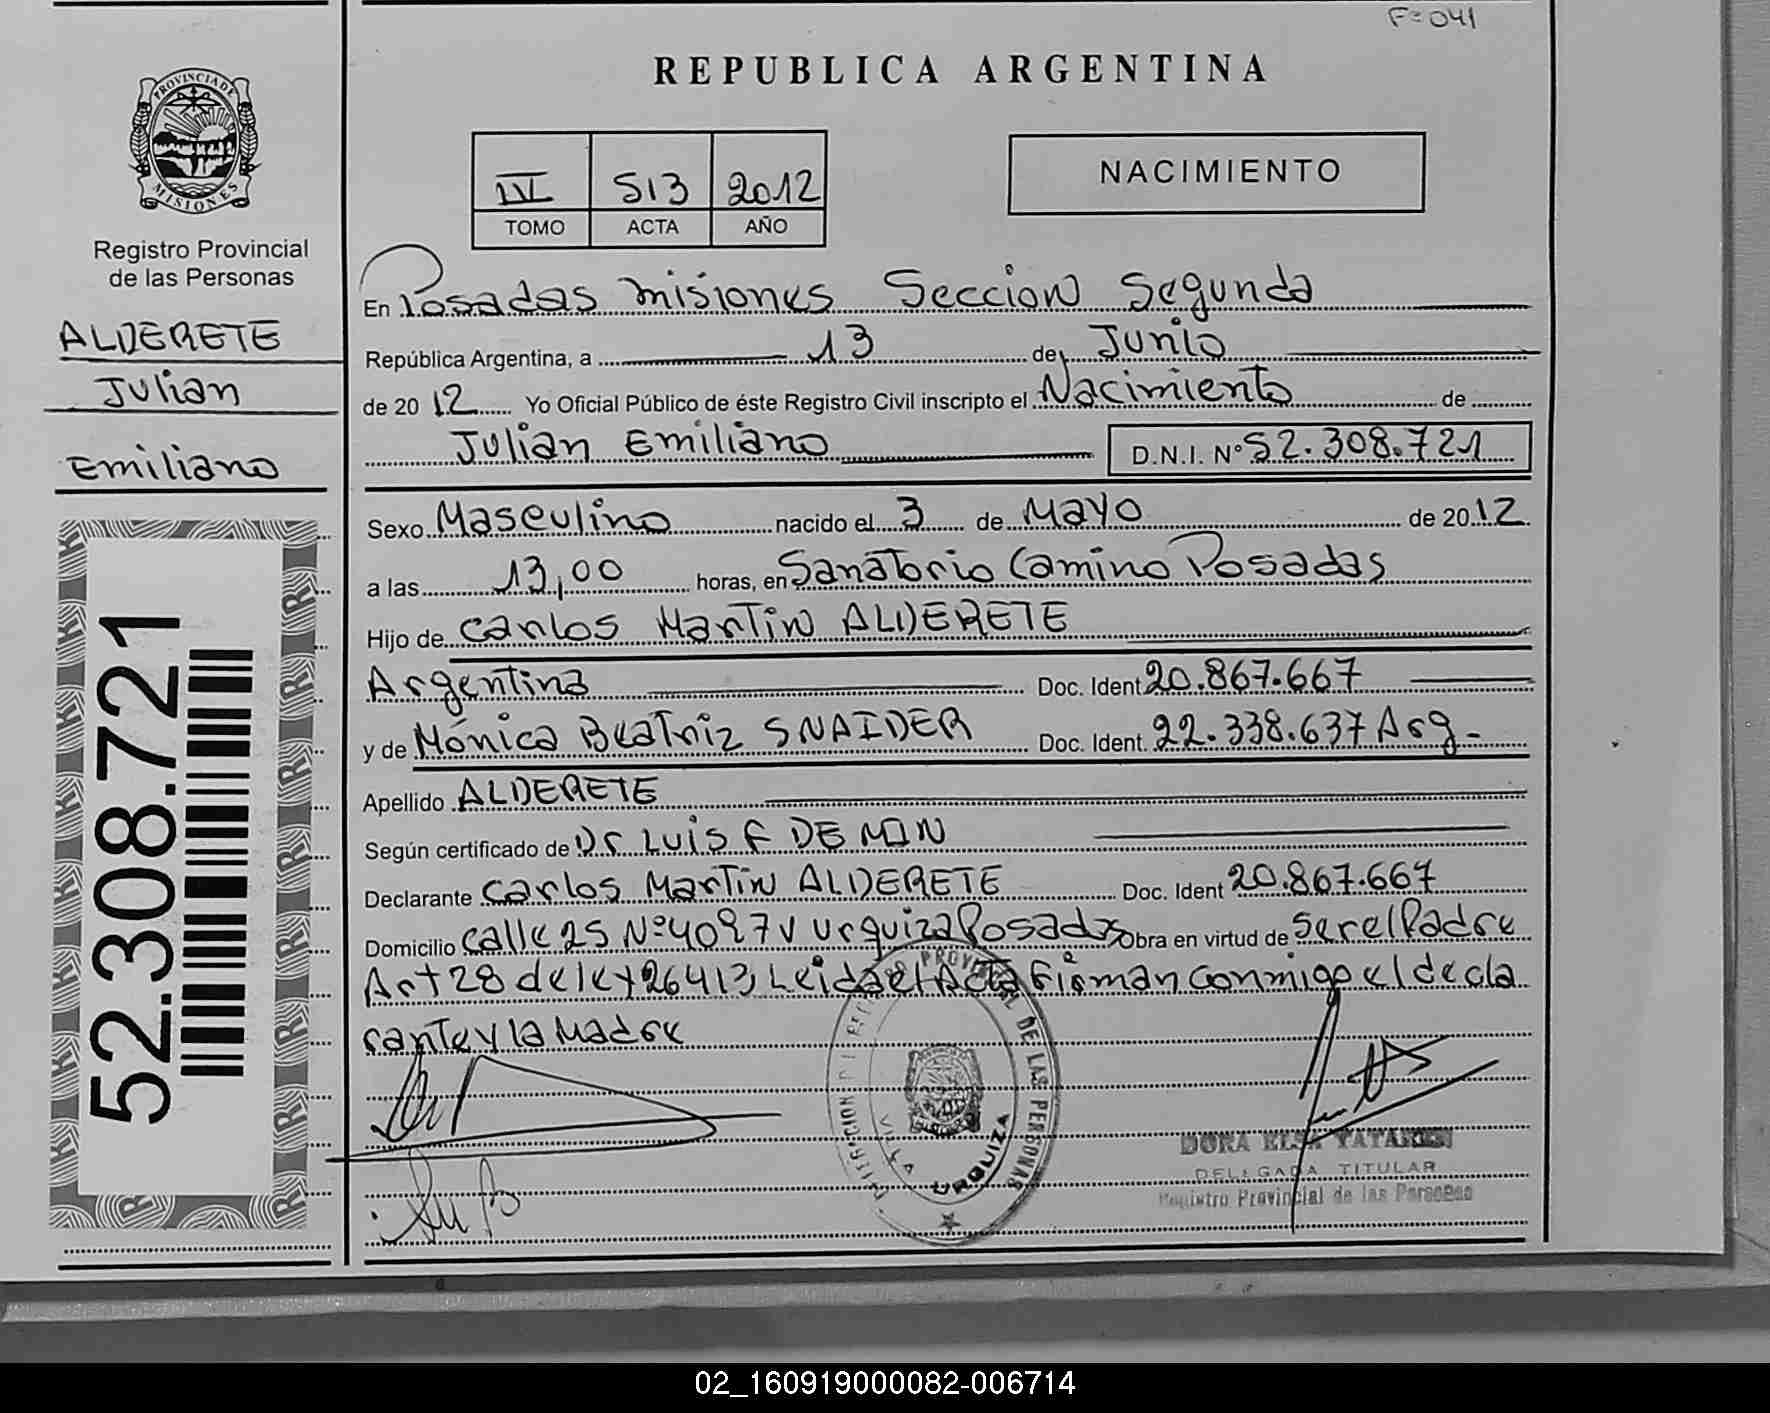 F=041
REPUBLICA ARGENTINA
PROVINCIA DE MISIONES
Registro Provincial
de las Personas
ALDERETE
Julian
Emiliano
52.308.721
IV 513 2012
TOMO ACTA AÑO
NACIMIENTO
En Posadas misiones Seccion Segunda
República Argentina, a 13 de Junio
de 2012 Yo Oficial Público de éste Registro Civil inscripto el Nacimiento de
Julian Emiliano D.N.I. Nº 52.308.721
Sexo Masculino nacido el 3 de Mayo de 2012
a las 13,00 horas, en Sanatorio Camino Posadas
Hijo de Carlos Martin ALDERETE
Argentina Doc. Ident 20.867.667
y de Mónica Beatriz SNAIDER Doc. Ident. 22.338.637 Arg.-
Apellido ALDERETE
Según certificado de Dr Luis F DE MIN
Declarante Carlos Martin ALDERETE Doc. Ident 20.867.667
Domicilio Calle 25 Nº 4097 V Urquiza Posadas Obra en virtud de Ser el Padre
Art 28 de ley 26413, Leida el Acta Firman conmigo el decla
rante y la Madre
PROVINCIAL DE LAS PERSONAS
VILLA URQUIZA
DORA ELSA
DELEGADA TITULAR
Registro Provincial de las Personas
02_160919000082-006714